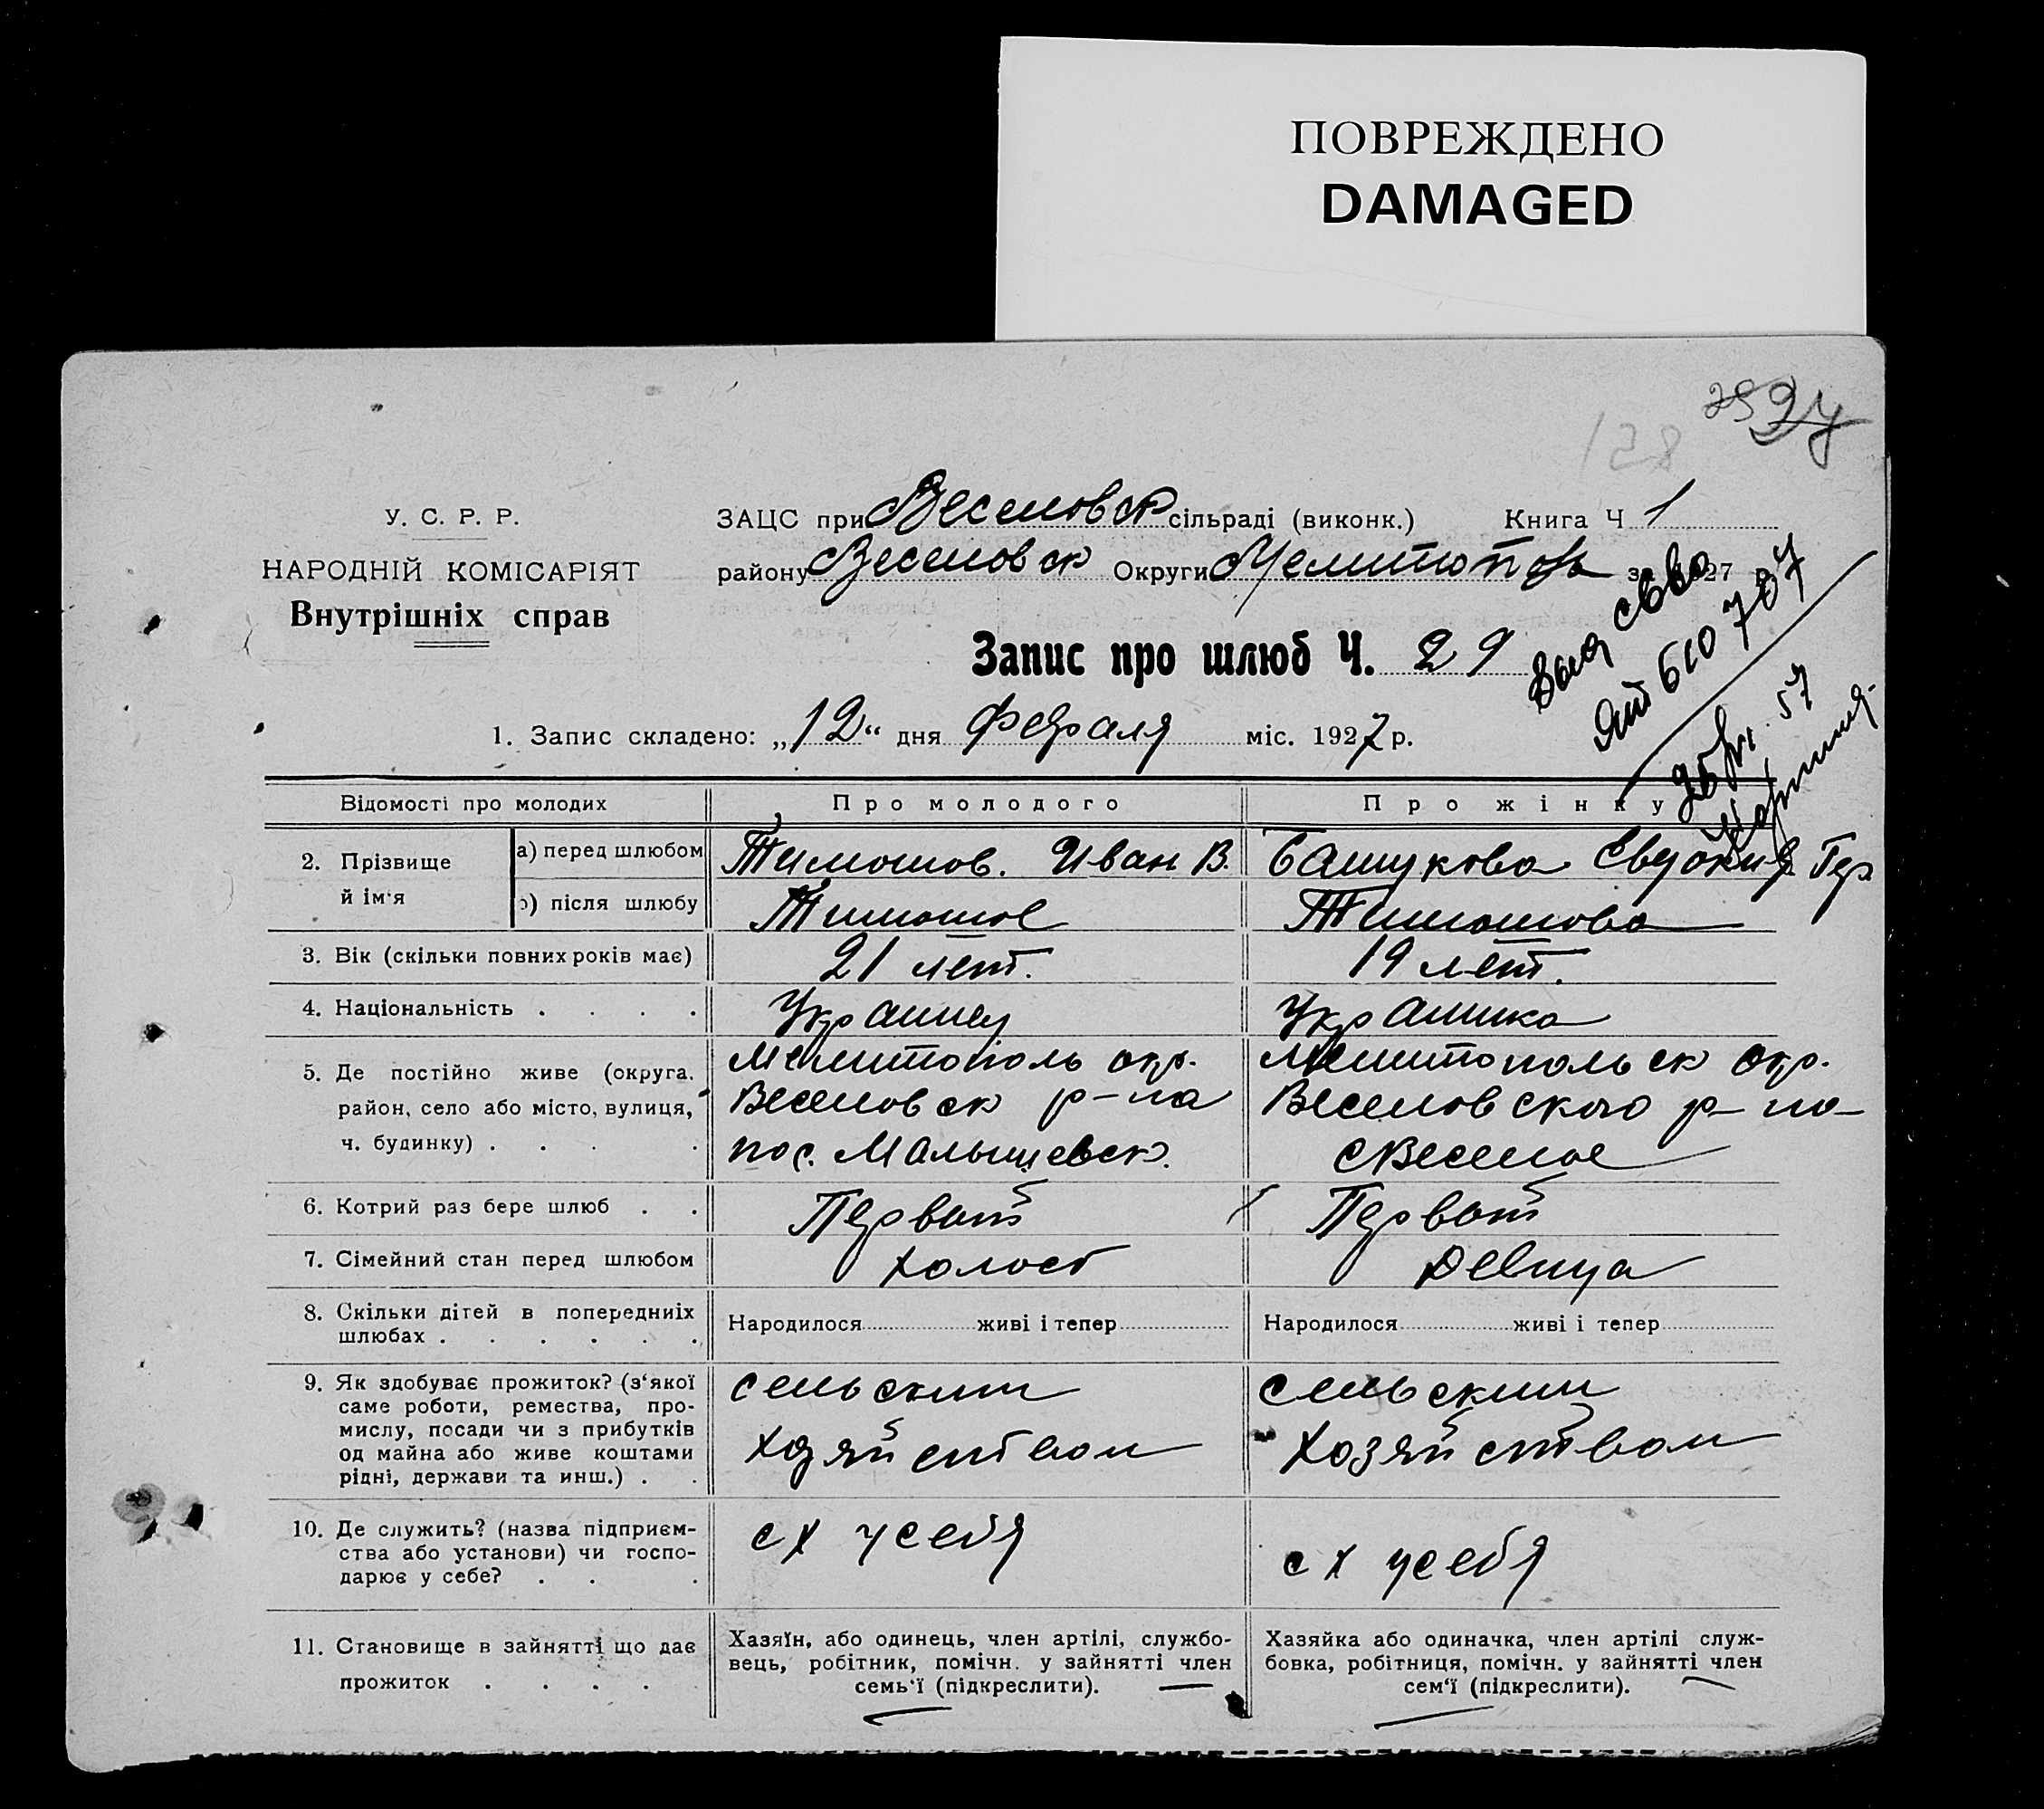 ПОВРЕЖДЕНО
DAMAGED
128
У. С. Р. Р.
НАРОДНІЙ КОМІСАРІЯТ
Внутрішніх справ
ЗАЦС при Веселовск сільраді (виконк.) Книга Ч 1
району Веселовск Округи Мелитопол 27
Запис про шлюб Ч. 29
1. Запис складено: „12“ дня февраля міс. 1927 р.
Выд сво
510707
57
Відомості про молодих
Про молодого
Про жінку
2. Прізвище й ім'я
а) перед шлюбом
Тимошов. Иван В.
Башукова Евдокия Гр.
) після шлюбу
Тимошов
Тимошова
3. Вік (скільки повних років має)
21 лет.
19 лет.
4. Національність . . . .
Украинец
Украинка
5. Де постійно живе (округа, район, село або місто, вулиця, ч. будинку) . . . .
Мелитополь окр.
Веселовск р-на
пос. Малышевск.
Мелитопольск окр.
Веселовского р-на
с Веселое
6. Котрий раз бере шлюб . .
Первый
Первый
7. Сімейний стан перед шлюбом
холост
девица
8. Скільки дітей в попередниіх
шлюбах . . . . . .
Народилося живі і тепер
Народилося живі і тепер
9. Як здобуває прожиток? (з'якої
саме роботи, ремества, про-
мислу, посади чи з прибутків
од майна або живе коштами
рідні, держави та инш.) . .
сельским
хозяйством
сельским
хозяйством
10. Де служить? (назва підприєм-
ства або установи) чи госпо-
дарює у себе? . . .
с х у себя
с х у себя
11. Становище в зайнятті що дає
прожиток . . . . .
Хазяїн, або одинець, член артілі, службо-
вець, робітник, помічн. у зайнятті член
семь'ї (підкреслити).
Хазяйка або одиначка, член артілі служ-
бовка, робітниця, помічн. у зайнятті член
сем'ї (підкреслити).